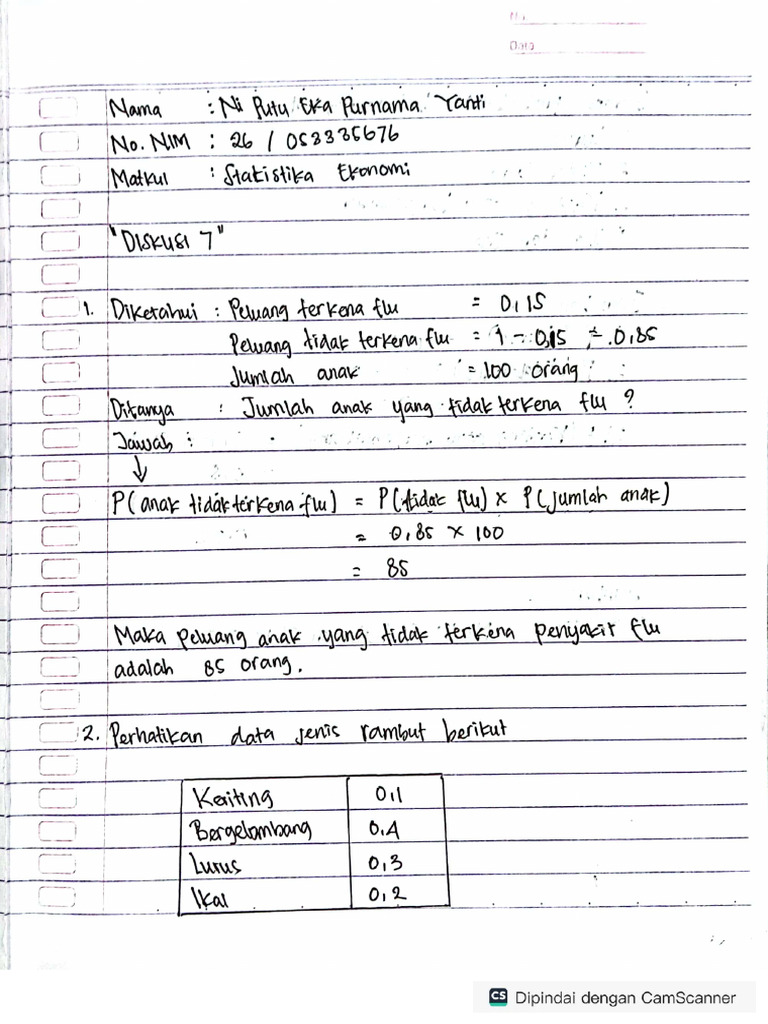 No.
Date
Nama : Ni Putu Eka Purnama Yanti
No. NIM : 26 / 053335676
Matkul : Statistika Ekonomi
"Diskusi 7"
1. Diketahui : Peluang terkena flu = 0,15
Peluang tidak terkena flu = 1 - 0,15 = 0,85
Jumlah anak = 100 orang
Ditanya : Jumlah anak yang tidak terkena flu ?
Jawab :
↓
P(anak tidak terkena flu) = P(tidak flu) x P(jumlah anak)
= 0,85 x 100
= 85
Maka peluang anak yang tidak terkena penyakit flu
adalah 85 orang.
2. Perhatikan data jenis rambut berikut
Keriting 0,1
Bergelombang 0,4
Lurus 0,3
Ikal 0,2
CS Dipindai dengan CamScanner